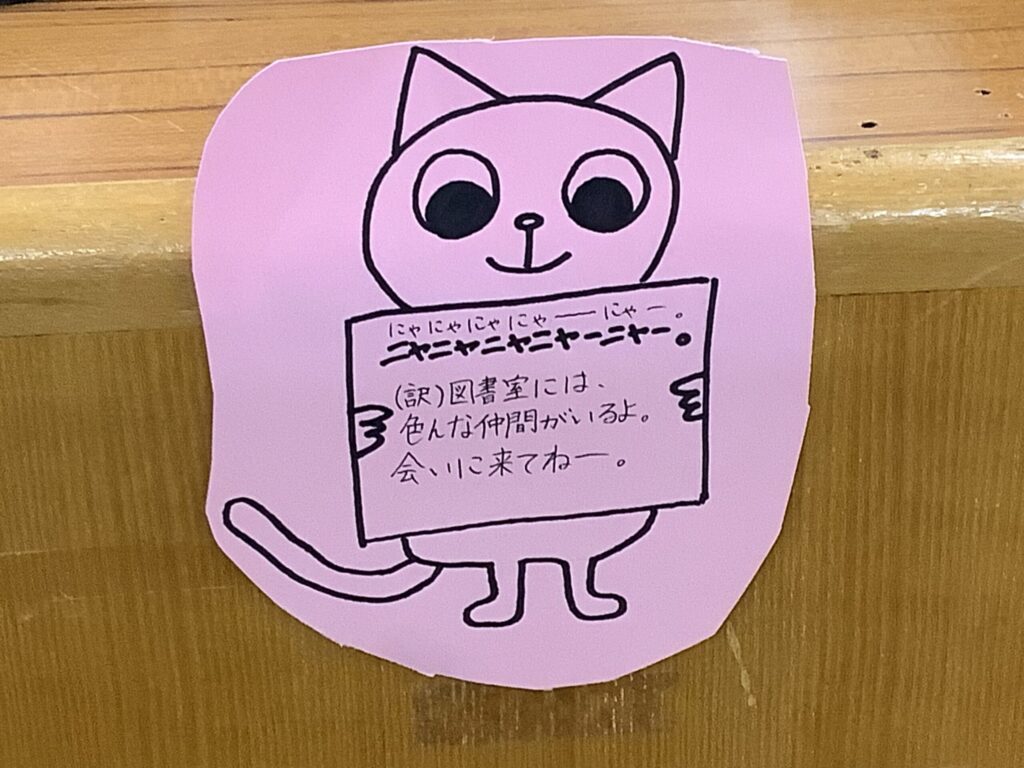 にゃにゃにゃにゃ――にゃー。
ニャニャニャニャーニャー。
(訳)図書室には、
色んな仲間がいるよ。
会いに来てねー。